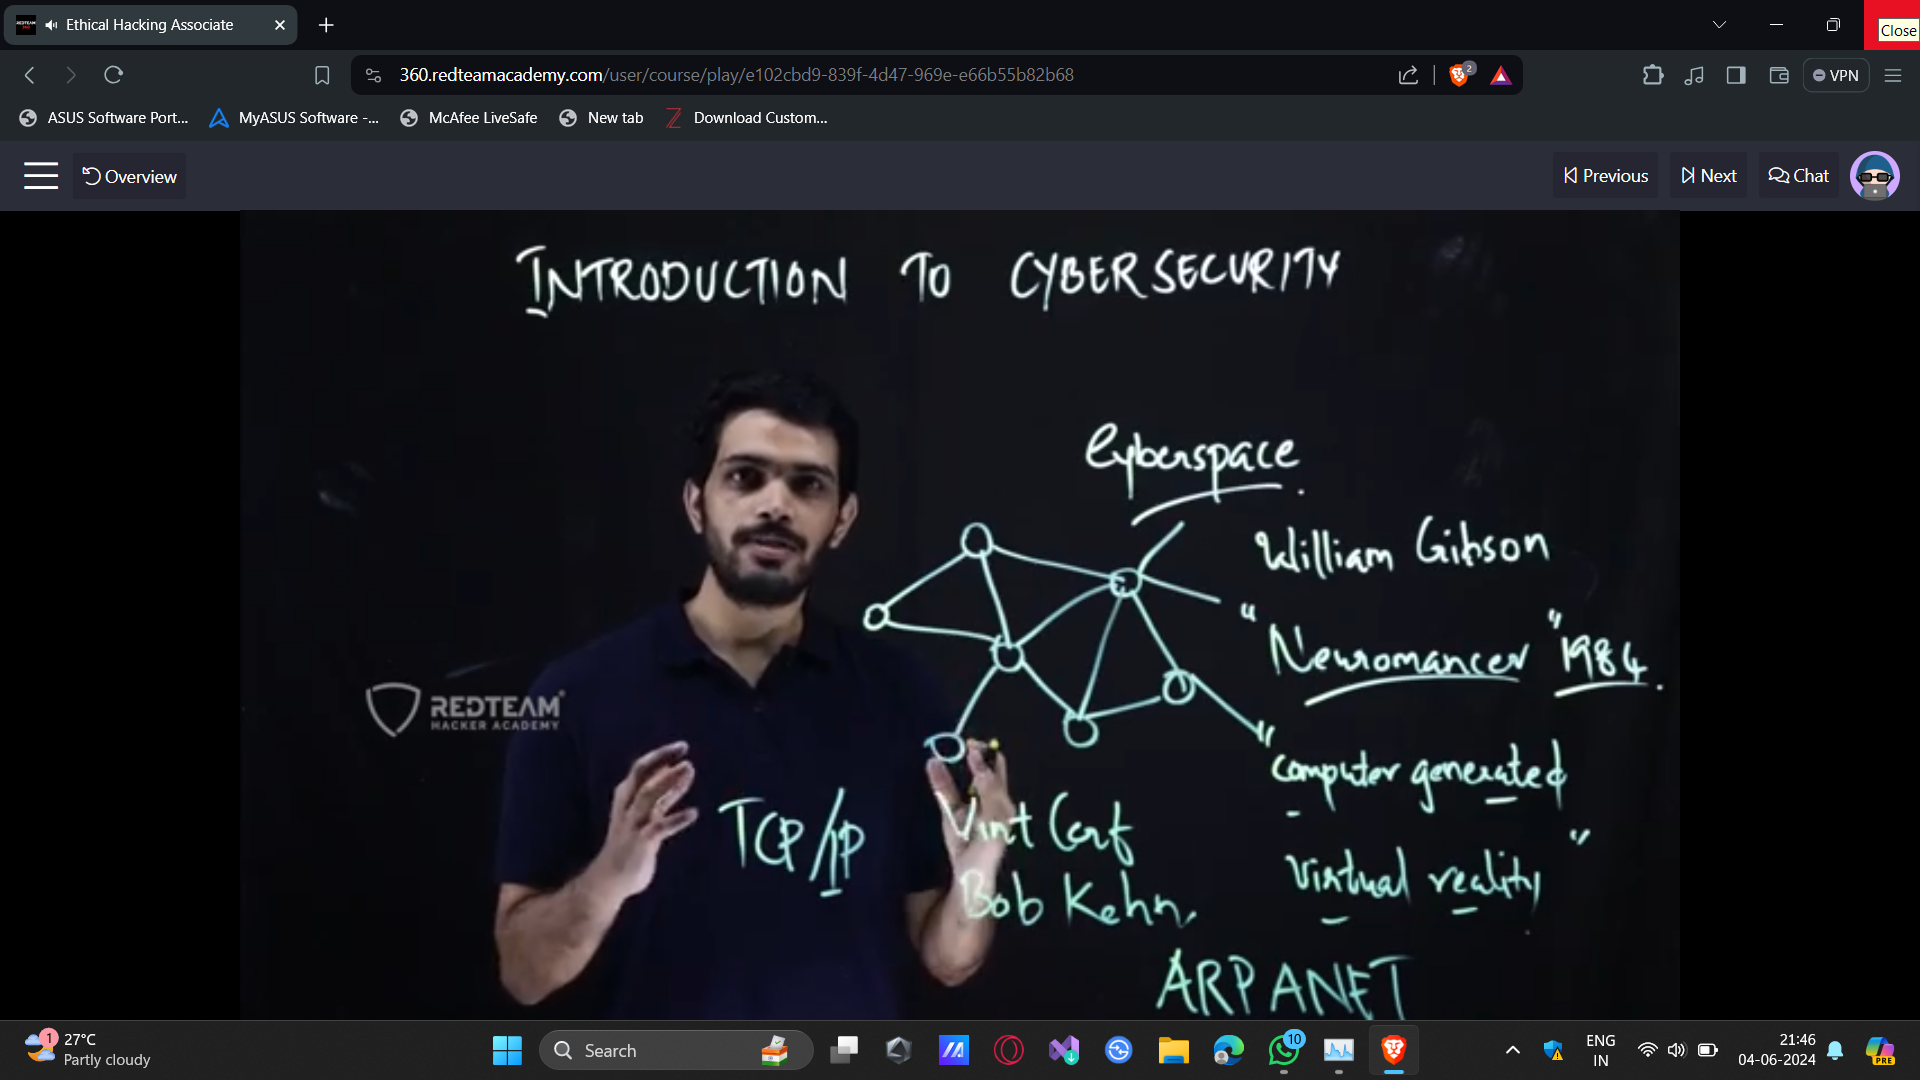 Ethical Hacking Associate
Close
360.redteamacademy.com/user/course/play/e102cbd9-839f-4d47-969e-e66b55b82b68
2
VPN
ASUS Software Port...
MyASUS Software -...
McAfee LiveSafe
New tab
Download Custom...
Overview
Previous
Next
Chat
INTRODUCTION TO CYBERSECURITY
Cyberspace
William Gibson
"Neuromancer" 1984.
"computer generated
virtual reality"
REDTEAM
HACKER ACADEMY
TCP/IP
Vint Cerf
Bob Kehn
ARPANET
1
27°C
Partly cloudy
Search
10
ENG
IN
21:46
04-06-2024
PRE